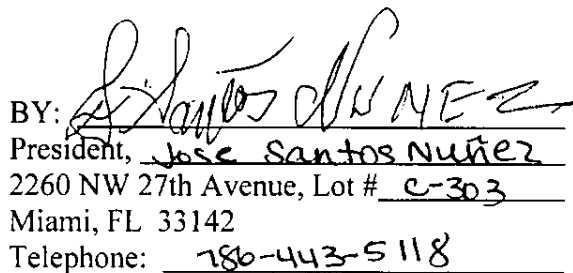 BY: J Santos NUNEZ
President, Jose Santos Nuñez
2260 NW 27th Avenue, Lot # C-303
Miami, FL 33142
Telephone: 786-443-5118